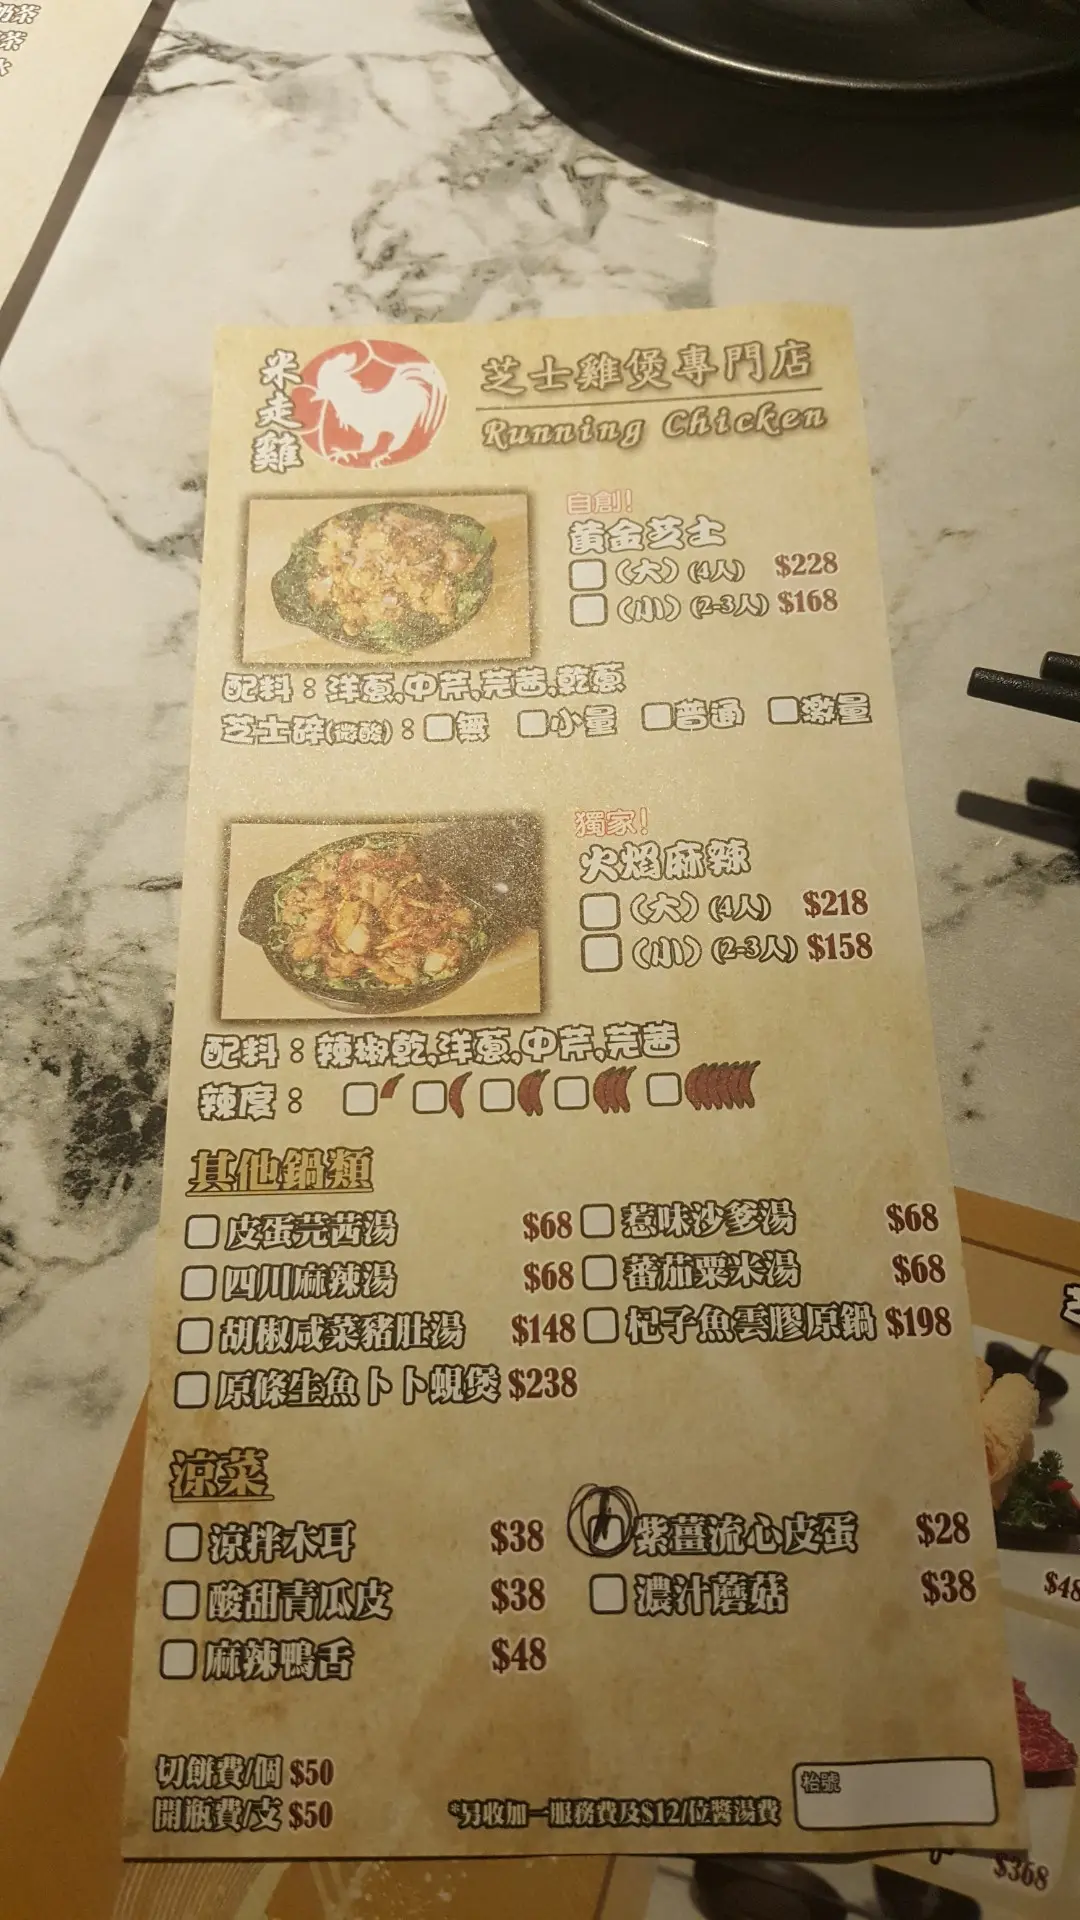 奶茶
茶
米走雞
芝士雞煲專門店
Running Chicken
自創!
黃金芝士
(大) (4人) $228
(小) (2-3人) $168
配料：洋蔥,中芹,芫茜,乾蔥
芝士碎(微酸)： 無 小量 普通 激量
獨家!
火焰麻辣
(大) (4人) $218
(小) (2-3人) $158
配料：辣椒乾,洋蔥,中芹,芫茜
辣度：
其他鍋類
皮蛋芫茜湯 $68 惹味沙爹湯 $68
四川麻辣湯 $68 蕃茄粟米湯 $68
胡椒咸菜豬肚湯 $148 杞子魚雲膠原鍋 $198
原條生魚卜卜蜆煲 $238
涼菜
涼拌木耳 $38 紫薑流心皮蛋 $28
酸甜青瓜皮 $38 濃汁蘑菇 $38
麻辣鴨舌 $48
切餅費/個 $50
開瓶費/支 $50
*另收加一服務費及$12/位醬湯費
枱號
$48
$368